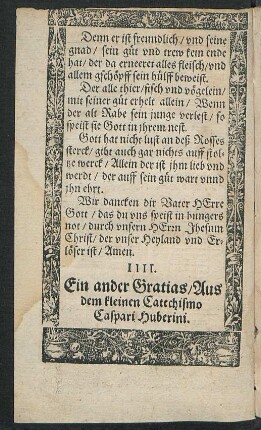 Denn er ist freundlich / vnd seine
gnad / sein güt vnd trew kein ende
hat / der da erneeret alles fleisch / vnd
allem gschöpff sein hülff beweist.
Der alle thier / fisch vnd vögelein /
mit seiner güt erhelt allein / Wenn
der alt Rabe sein junge verlest / so
speist sie Gott in jhrem nest.
Gott hat nicht lust an deß Rosses
sterck / gibt auch gar nichts auff stol-
tze werck / Allein der ist jhm lieb vnd
werdt / der auff sein güt wart vnnd
jhn ehrt.
Wir dancken dir Vater HErre
Gott / das du vns speist in hungers
not / durch vnsern HErrn Jhesum
Christ / der vnser Heyland vnd Er-
löser ist / Amen.
IIII.
Ein ander Gratias / Aus
dem kleinen Catechismo
Caspari Huberini.